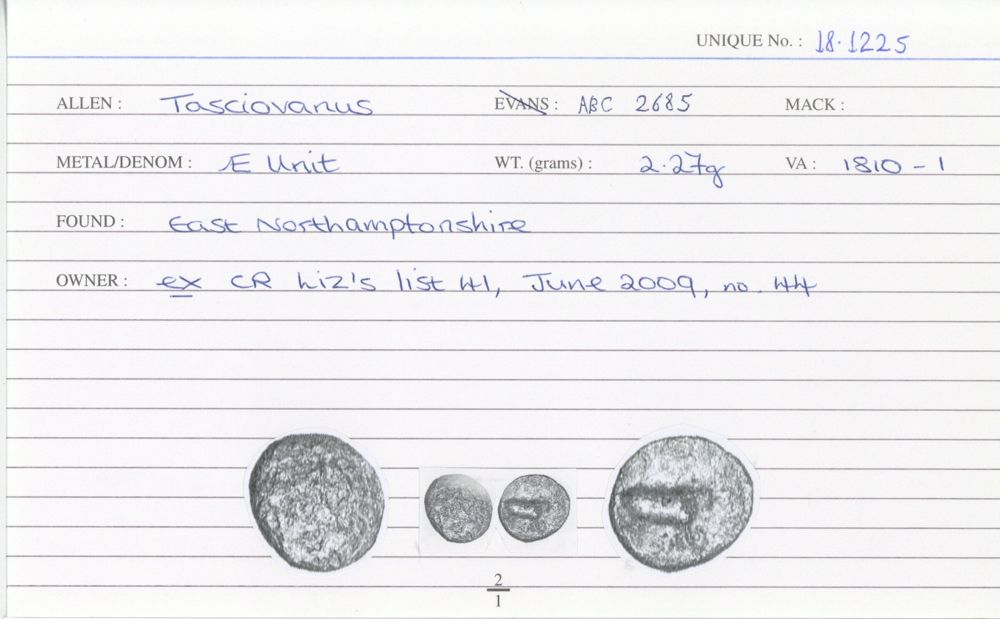 UNIQUE No. : 18.1225
ALLEN : Tasciovanus EVANS : ABC 2685 MACK :
METAL/DENOM : Æ Unit WT. (grams) : 2.27g VA : 1810-1
FOUND : East Northamptonshire
OWNER : ex CR Liz's list 41, June 2009, no. 44
2
1